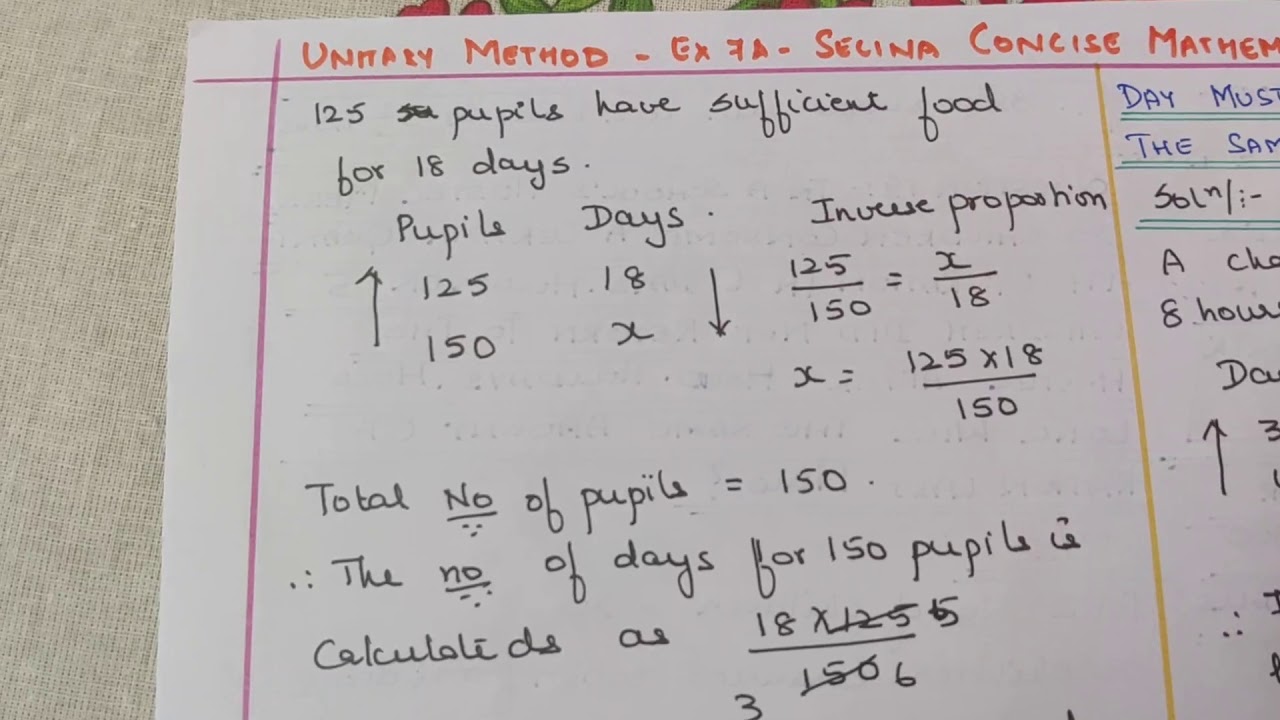 UNITARY METHOD - EX 7A - SELINA CONCISE MATHEM
125 pupils have sufficient food
for 18 days.
Pupils Days. Inverse proportion
125 18 125/150 = x/18
150 x
x = 125 x 18 / 150
Total No of pupils = 150.
∴ The no. of days for 150 pupils is
Calculated as 18 x 125 5 / 150 6
3
DAY MUST
THE SAM
Soln/:-
A cha
8 hours
Da
3
∴ I